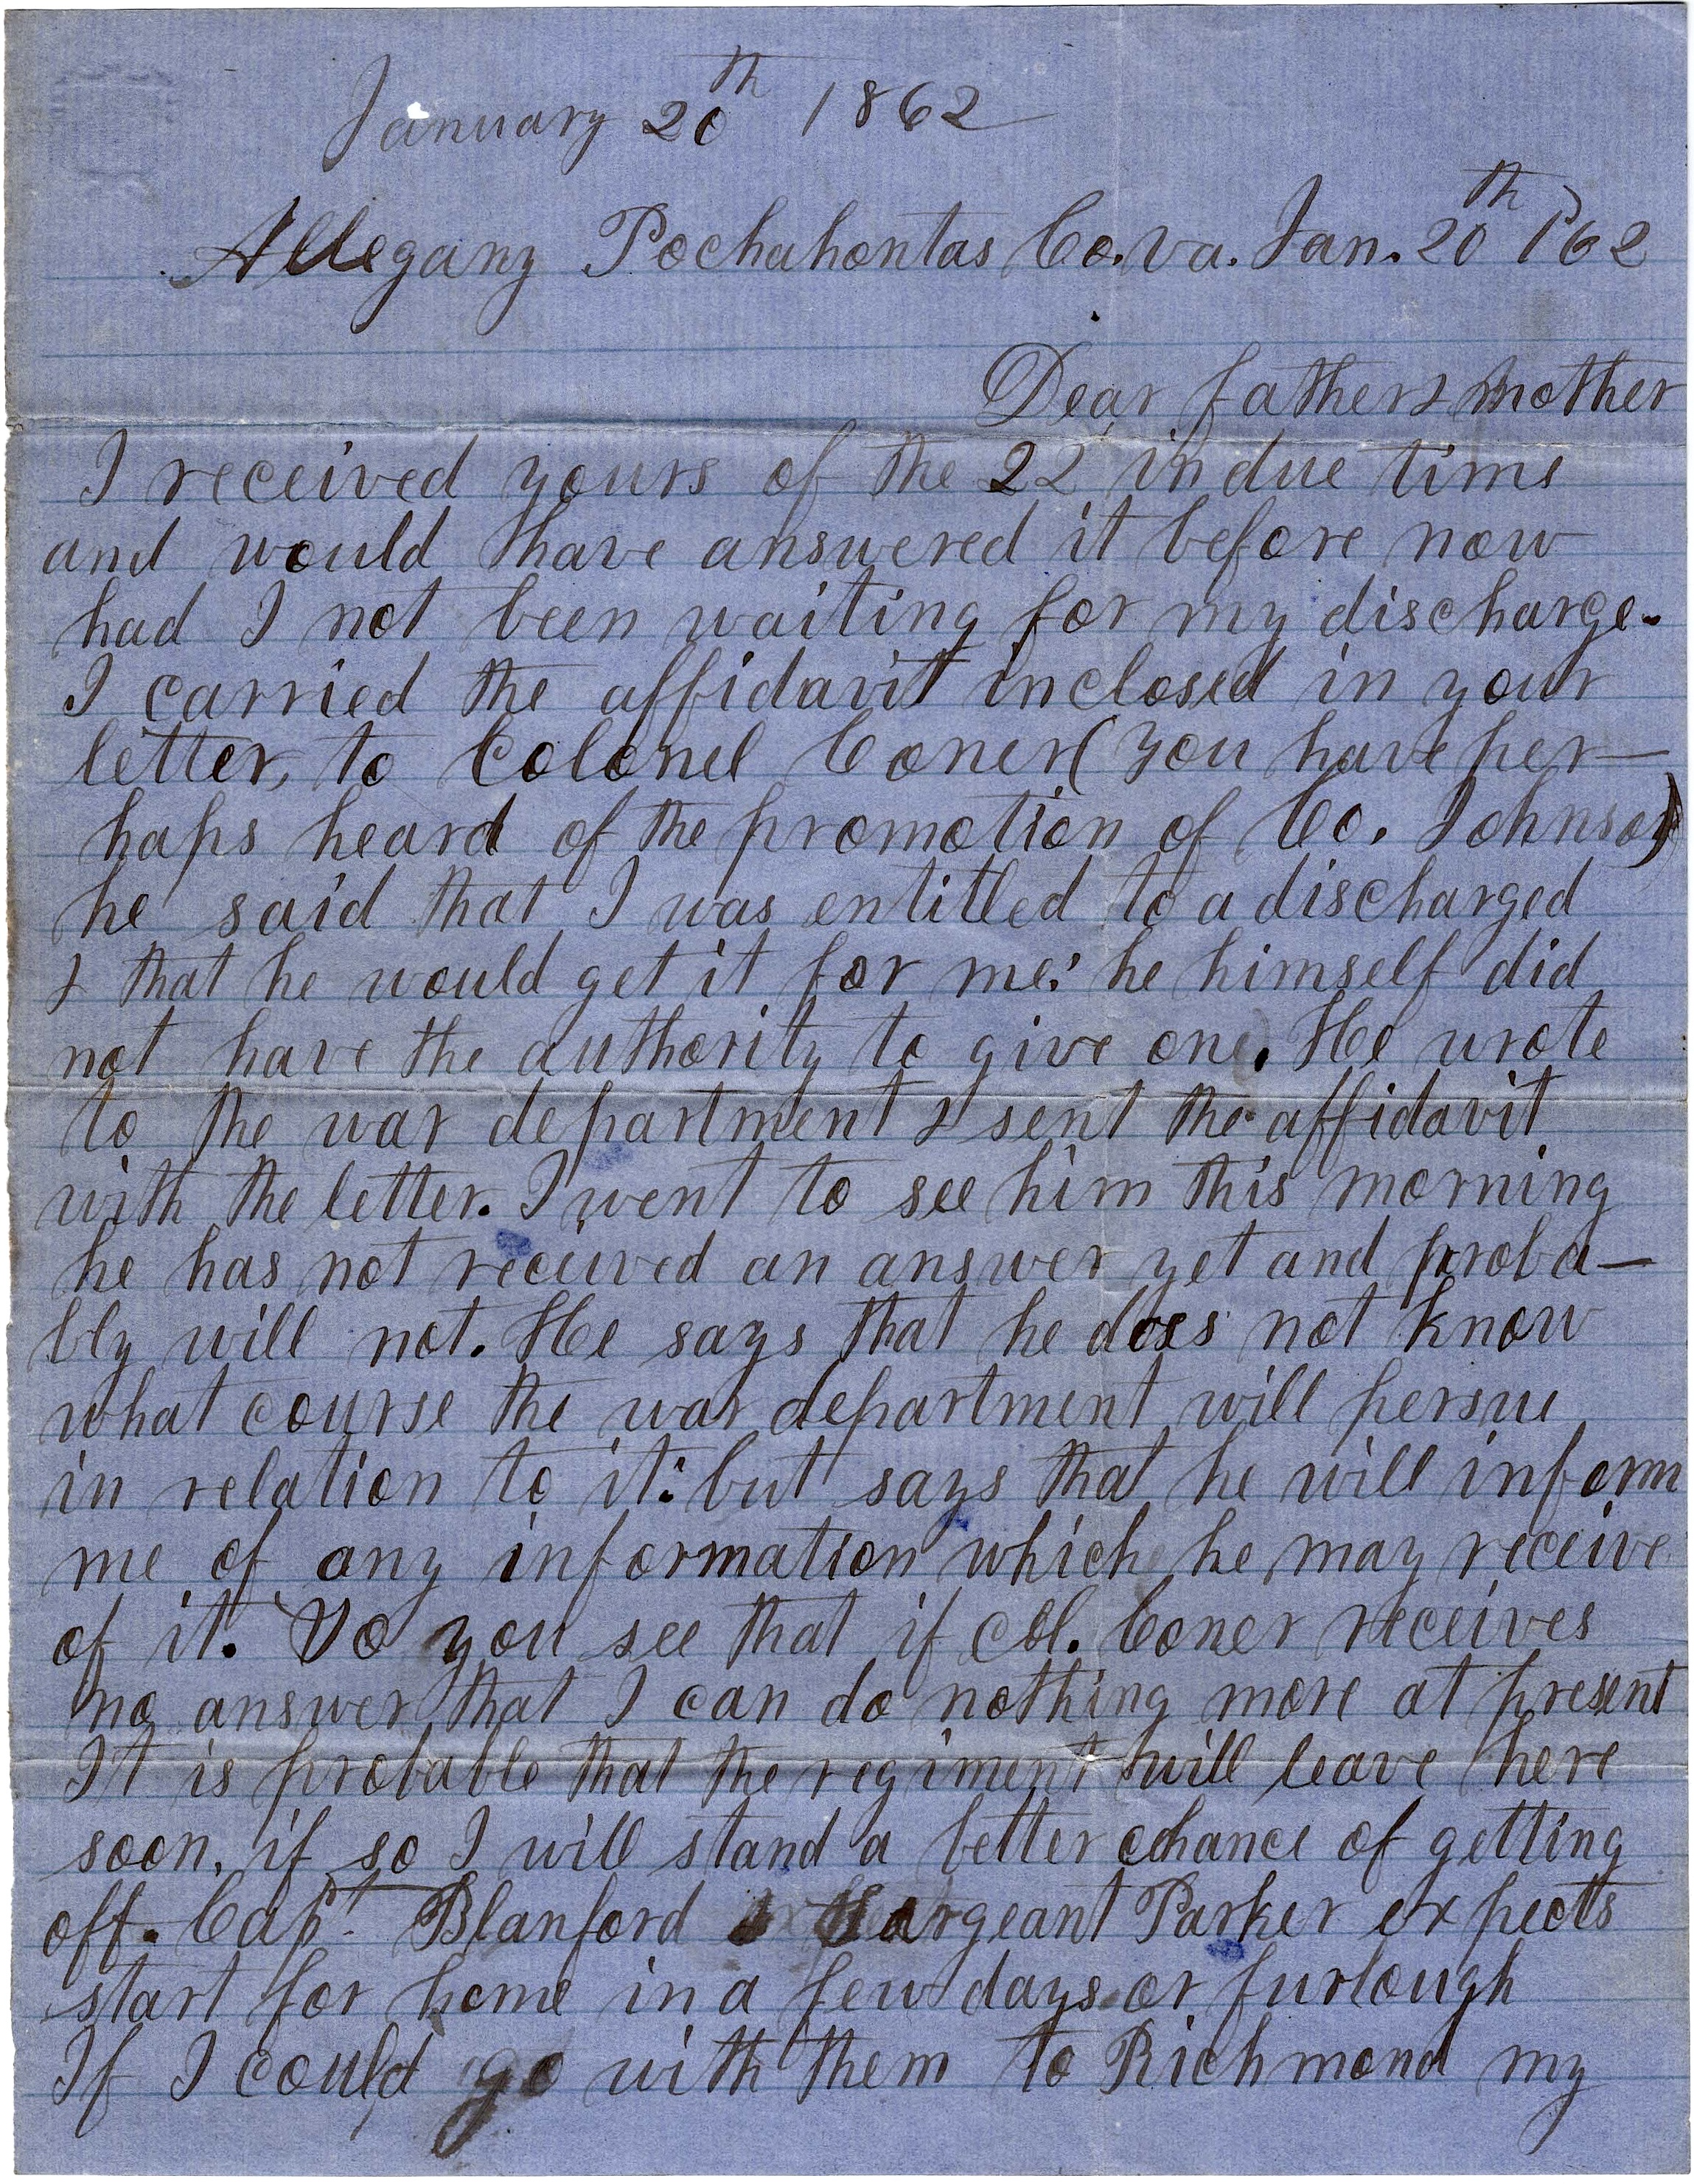 January 20th 1862
Allegany Pochahontas Co. Va. Jan. 20th 1862
Dear father & mother
I received yours of the 22 in due time
and would have answered it before now
had I not been waiting for my discharge.
I carried the affidavit inclosed in your
letter, to Colonel Coner (you have per-
haps heard of the promotion of Co. Johnson)
he said that I was entitled to a discharged
& that he would get it for me: he himself did
not have the authority to give one. He wrote
to the war department & sent the affidavit
with the letter. I went to see him this morning
he has not received an answer yet and proba-
bly will not. He says that he does not know
what course the war department will persue
in relation to it: but says that he will inform
me of any information which he may receive
of it. So you see that if col. Coner receives
no answer that I can do nothing more at present
It is probable that the regiment will leave here
soon, if so I will stand a better chance of getting
off. Capt. Blanford & Sargeant Parker expects
start for home in a few days or furlough
If I could go with them to Richmond my